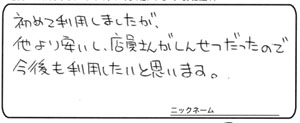 初めて利用しましたが、
他より安いし、店員さんがしんせつだったので
今後も利用したいと思います。
ニックネーム